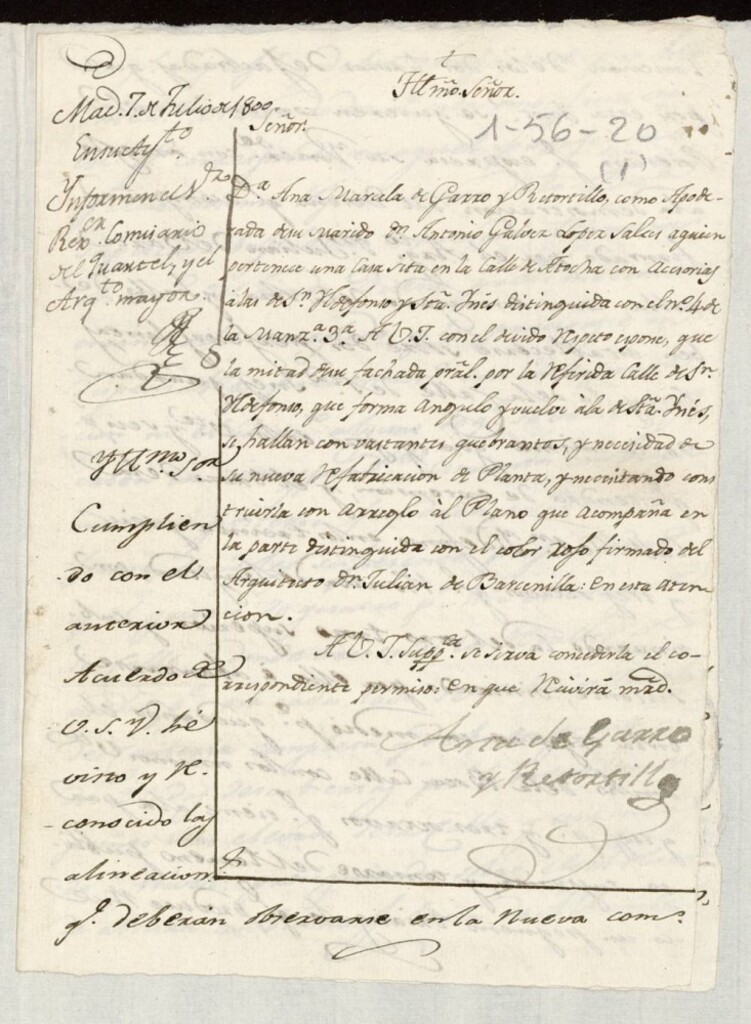 †
Yltmõ. Señor.
1-56-20
(1)
Mad. 7. de Julio de 1800
En su Ayto.
Ynformen el Sr.
Rexor. Comisario
del Quartel, y el
Arqto. mayor.
Señor.
Da. Ana Marcela de Garro y Retortillo, como Apode-
rada de su Marido Dn. Antonio Galvez Lopez Sales aquien
pertenece una Casa sita en la Calle de Atocha con Accesorias
à las de Sn. Yldefonso y Sta. Ynés distinguida con el nº. 4 de
la Manza. 3a. A V.I. con el devido Respeto espone, que
la mitad de su fachada pral. por la Referida Calle de Sn.
Yldefonso, que forma Angulo y vuelve à la de Sta. Ynés,
se hallan con vastantes quebrantos, y necesidad de
su nueva Refabricacion de Planta, y necesitando cons
truirla con Arreglo àl Plano que acompaña en
la parte distinguida con el color roso firmado del
Arquitecto Dn. Julian de Barcenilla: en esta aten-
cion.
A V.I. Suppca. se sirva concederla el co-
rrespondiente permiso: en que Recivirá mrd.
Ana de Garro
y Retortillo
Yllmo. Sor.
Cumplien
do con el
anterior
Acuerdo de
V.S.Y. hé
visto y Re-
conocido las
alineacions.
qe. deberán observarse en la Nueva cons-